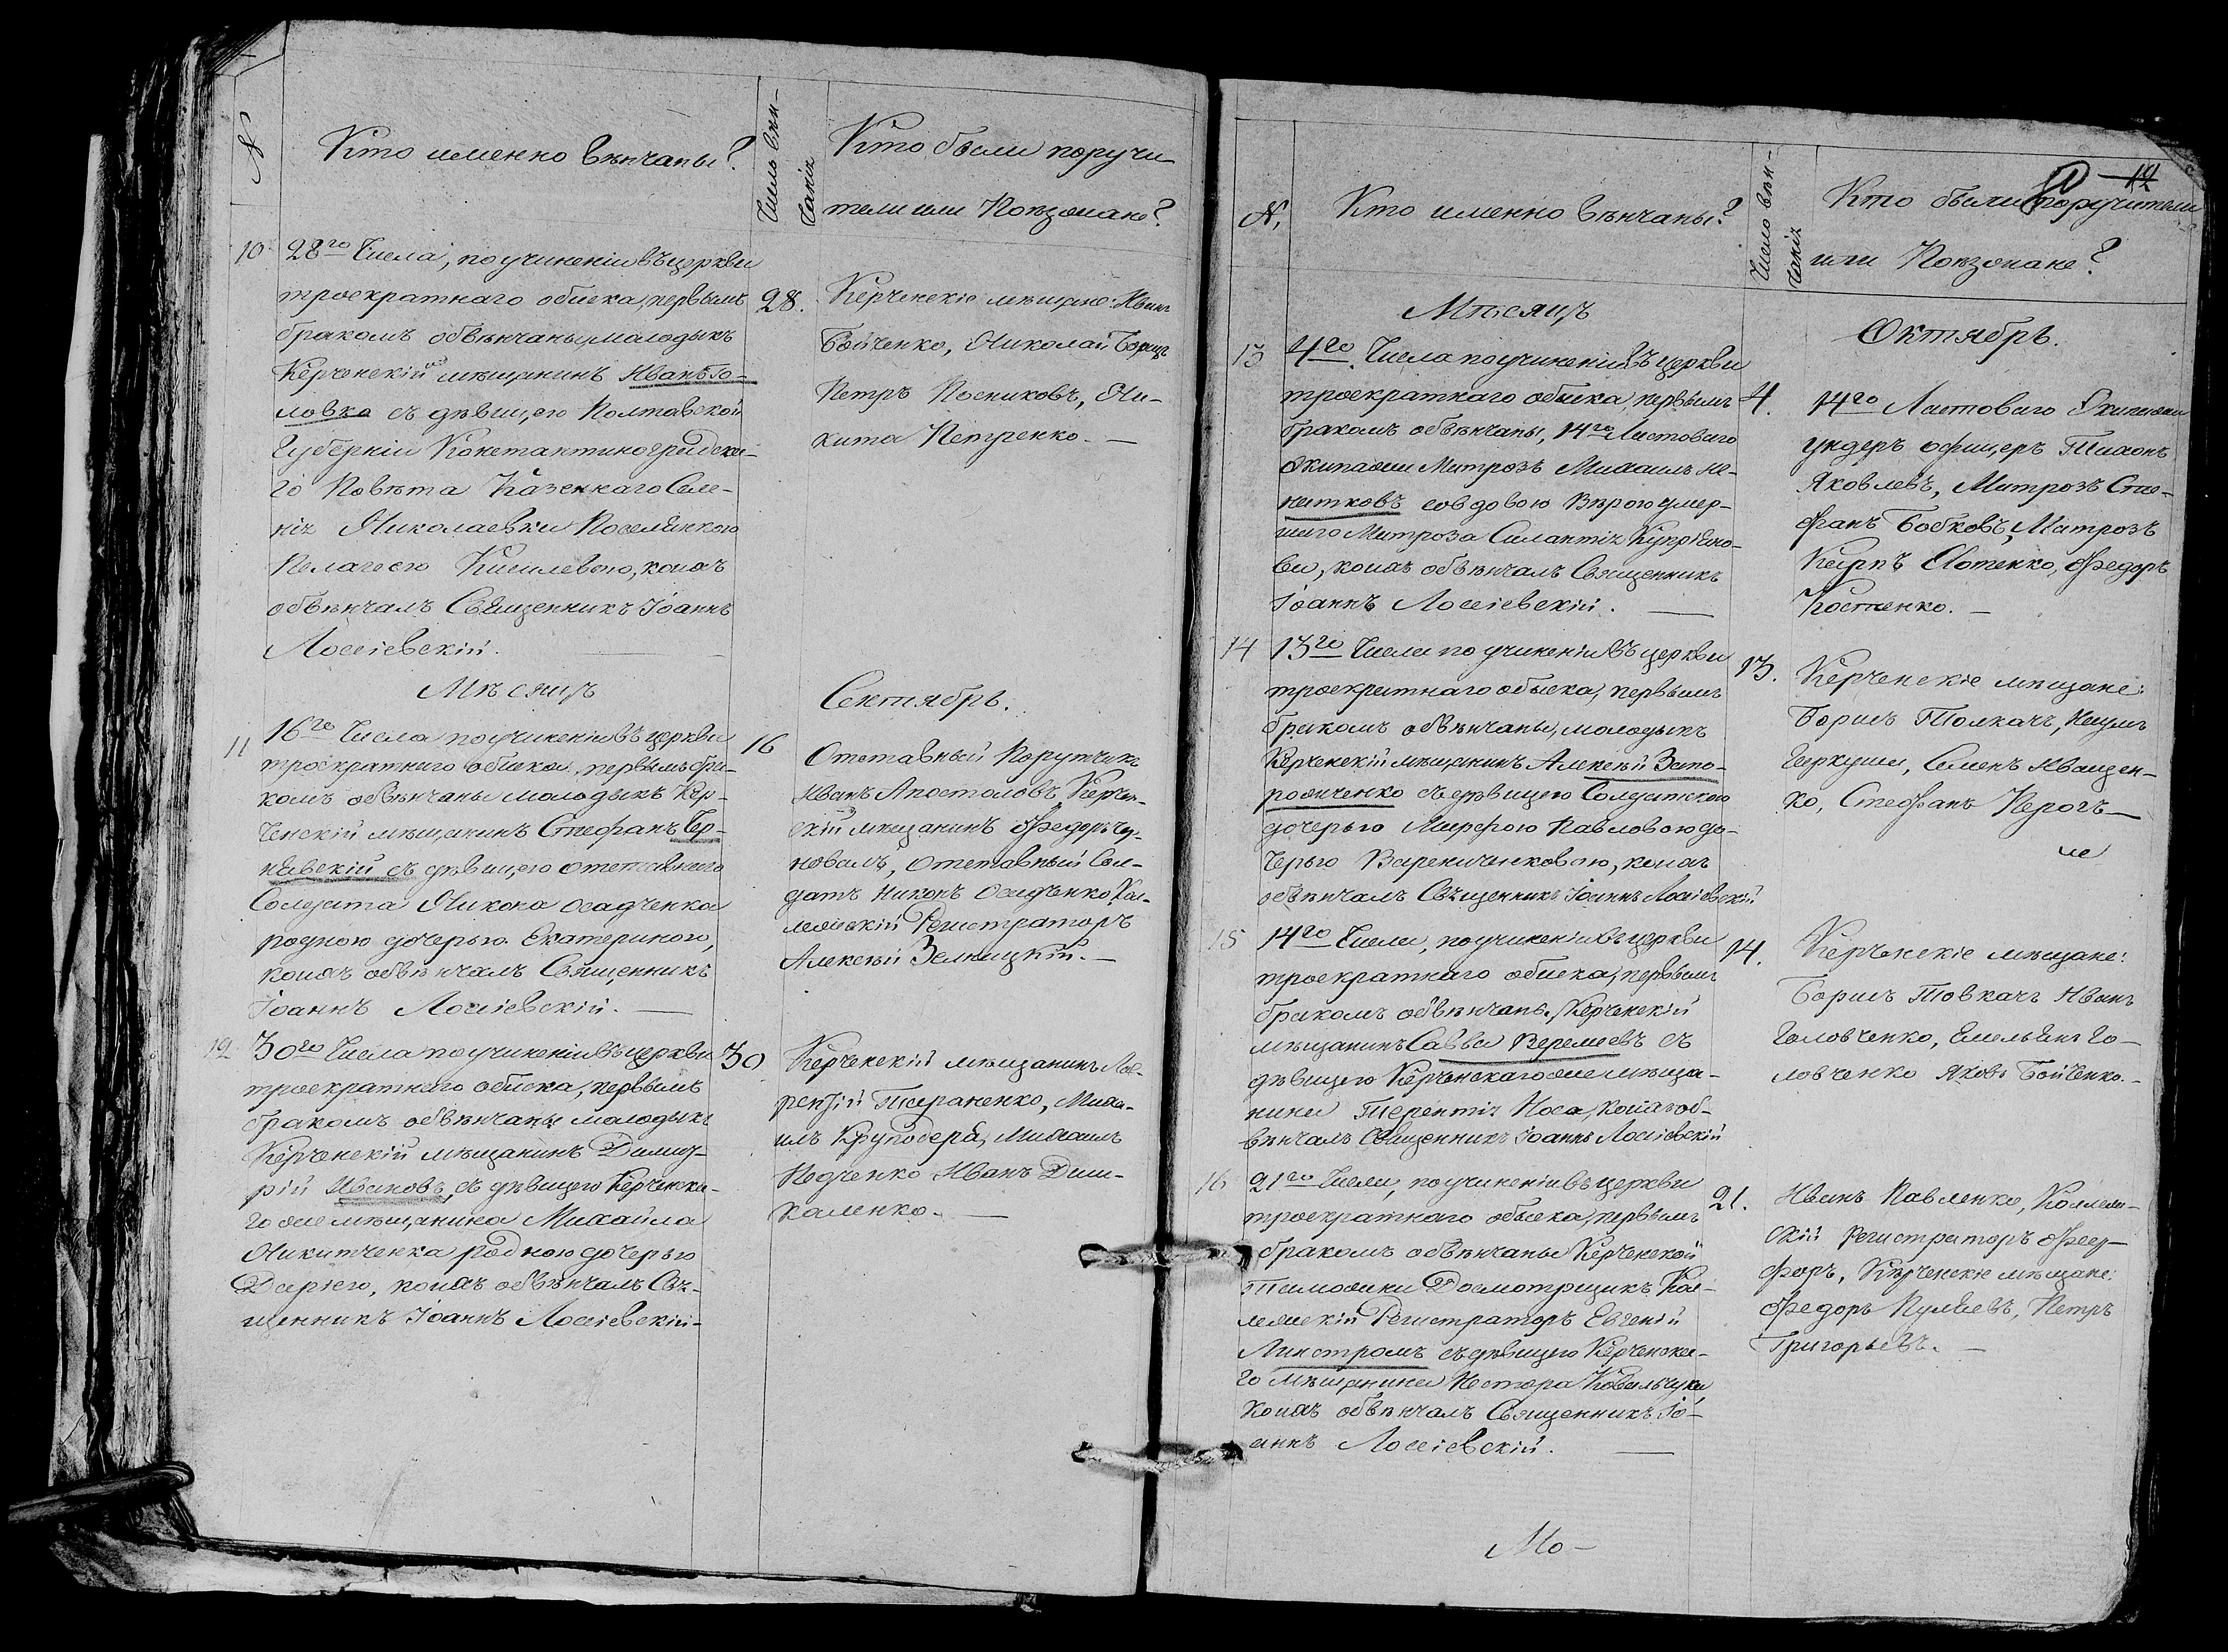 №
Кто именно вѣнчаны?
Число вѣн-
чанія
Кто были поручи-
тели или Поѣзжане?
10
28го Числа, по учиненіи въ церкви
троекратнаго обыска, первымъ
бракомъ обвѣнчаны молодыкъ
Керченскій мѣщанинъ Иванъ Го-
ловко съ дѣвицею Полтавской
Губерніи Константиноградска-
го Повѣта Казеннаго Селе-
нія Николаевки Поселянкою
Пелагеею Киселевою, коихъ
обвѣнчалъ Священникъ Іоаннъ
Лоссіевскій.
28.
Керченскіе мѣщане: Иванъ
Бойченко, Николай Борец
Петръ Посниковъ, Ни-
кита Петренко. —
Мѣсяцъ
Сентябрь.
11
16го Числа по учиненіи въ церкви
троекратнаго обыска, первымъ бра-
комъ обвѣнчаны молодыкъ Кер-
ченскій мѣщанинъ Стефанъ Чер-
нявскій съ дѣвицею отставнаго
Солдата Никона Осадченка
родною дочерью Екатериною,
коихъ обвѣнчалъ Священникъ
Іоаннъ Лоссіевскій. —
16
Отставный Порутчикъ
Иванъ Апостоловъ, Керчен-
скій мѣщанинъ Федоръ Чу-
новалъ, Отставный Сол-
датъ Никонъ Осадченко, Кол-
лежскій Регистраторъ
Алексѣй Зелницкій. —
12
30го Числа по учиненіи въ церкви
троекратнаго обыска, первымъ
бракомъ обвѣнчаны молодыкъ
Керченскій мѣщанинъ Димит-
рій Ивановъ, съ дѣвицею Керченска-
го же мѣщанина Михайла
Никитченка родною дочерью
Даріею, коихъ обвѣнчалъ Свя-
щенникъ Іоаннъ Лоссіевскій-
30
Керченскій мѣщанинъ Лав-
рентій Тараненко, Миха-
илъ Круподера, Михаилъ
Педченко Иванъ Диш-
каленко. —
12
№,
Кто именно вѣнчаны?
Число вѣн-
чанія
Кто были поручители
или Поѣзжане?
Мѣсяцъ
Октябрь.
13
4го. Числа по учиненіи въ церкви
троекратнаго обыска, первымъ
бракомъ обвѣнчаны, 14го Ластоваго
Экипажа Матрозъ Михаилъ Не-
нятковъ со вдовою Вѣрою умер-
шаго Матроза Силантія Купріяно-
ва, коихъ обвѣнчалъ Священникъ
Іоаннъ Лоссіевскій. —
4.
14го Ластоваго Экипажа
ундеръ офицеръ Тихонъ
Яковлевъ, Матрозъ Сте-
фанъ Бобковъ, Матрозъ
Карпъ Котенко, Федоръ
Костенко. —
14
13го Числа по учиненіи въ церкви
троекратнаго обыска, первымъ
бракомъ обвѣнчаны, молодыкъ
Керченскій мѣщанинъ Алексѣй Запо-
рожченко съ дѣвицею Солдатскою
дочерью Марфою Павловою до-
черью Варениченковою, коихъ
обвѣнчалъ Священникъ Іоаннъ Лоссіевскій
13.
Керченскіе мѣщане:
Борисъ Толкачъ, Наумъ
Гаркуша, Семенъ Иващен-
ко, Стефанъ Перогъ —
15
14го Числа, по учиненіи въ церкви
троекратнаго обыска, первымъ
бракомъ обвѣнчаны, Керченскій
мѣщанинъ Савва Веремеевъ съ
дѣвицею Керченскаго же мѣща-
нина Терентія Носа, коихъ об-
вѣнчалъ Священникъ Іоаннъ Лоссіевскій
14.
Керченскіе мѣщане:
Борисъ Товкачъ Иванъ
Головченко, Емельянъ Го-
ловченко Яковъ Бойченко. -
16
21го Числа, по учиненіи въ церкви
троекратнаго обыска, первымъ
бракомъ обвѣнчаны Керченской
Таможни Досмотрщикъ Кол-
лежскій Регистраторъ Евгеній
Линстромъ съ дѣвицею Керченска-
го мѣщанина Нестора Ковальчука
коихъ обвѣнчалъ Священникъ Іо-
аннъ Лоссіевскій. —
21.
Иванъ Павленко, Коллеж-
скій Регистраторъ
Керченскіе мѣщане:
Федоръ Пуляевъ, Петръ
Григорьевъ. —
Мо-